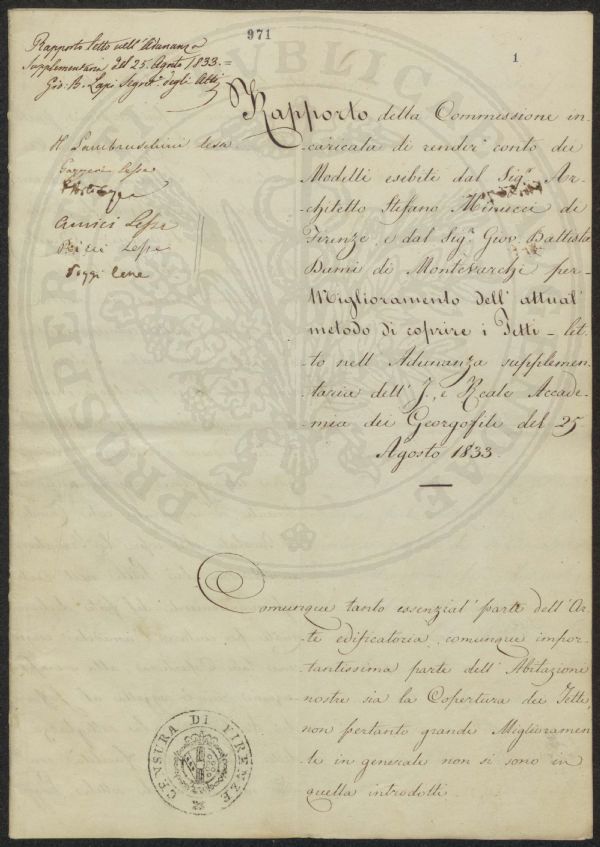 971
1
Rapporto letto nell'Adunanza
Supplementaria del 25. Agosto 1833.=
Gio: B. Lapi Segret.º degli Atti
H Lambruschini lesse
Gazzeri lesse
Amici Lesse
Ricci Lesse
Poggi lesse
Rapporto della Commissione in-
-caricata di render conto dei
Modelli esibiti dal Sig.r Ar-
chitetto Stefano Minucci di
Firenze, e dal Sig.r Giov. Battista
Dami di Montevarchi per
Miglioramento dell'attual'
metodo di coprire i Tetti - let-
to nell'Adunanza supplemen-
taria dell'I. e Reale Accade-
-mia dei Georgofili del 25
Agosto 1833.
Comunque tanto essenzial' parte dell'Ar-
-te edificatoria, comunque impor-
-tantissima parte dell'Abitazione
nostre sia la Copertura dei Tetti,
non pertanto grandi Migliorament-
ti in generale non si sono in
quella introdotti.
CENSURA DI FIRENZE
PROSPERITATI PUBLICAE